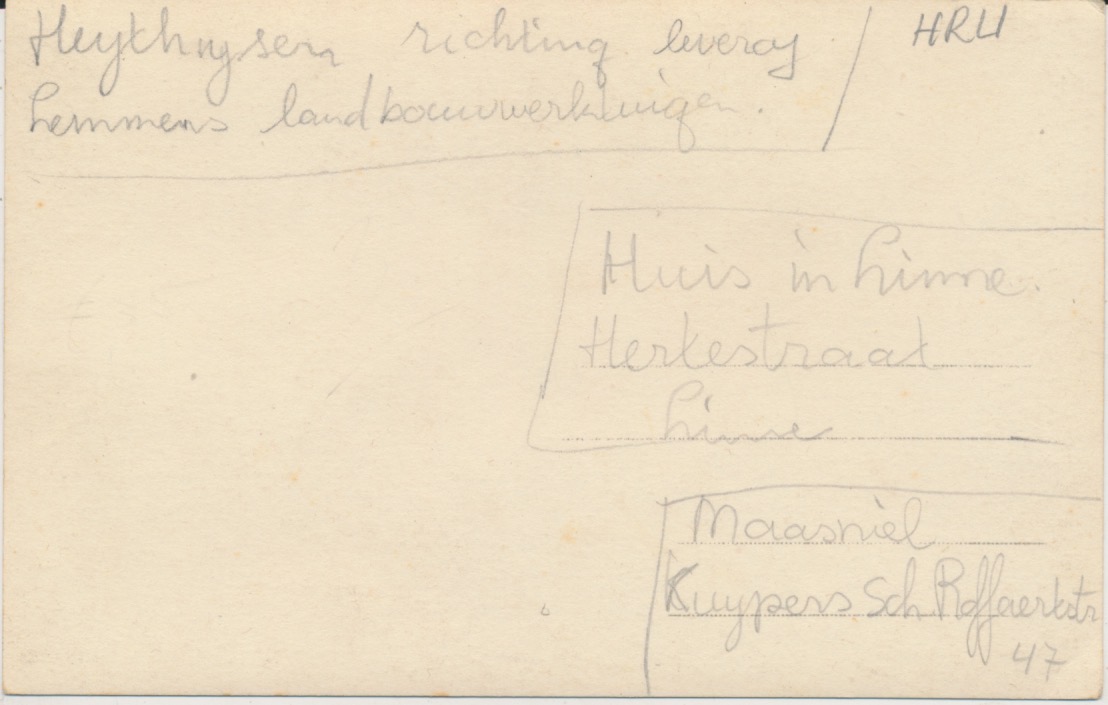 Heythuysen richting leveroy / HRU
Lemmens landbouwwerktuigen.
Huis in Linne.
Herkestraat
Linne
Maasniel
Kuypers Sch
47